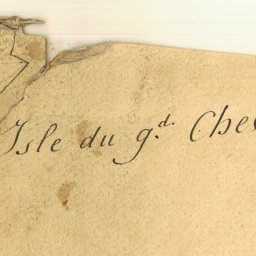 Isle du gd. Che